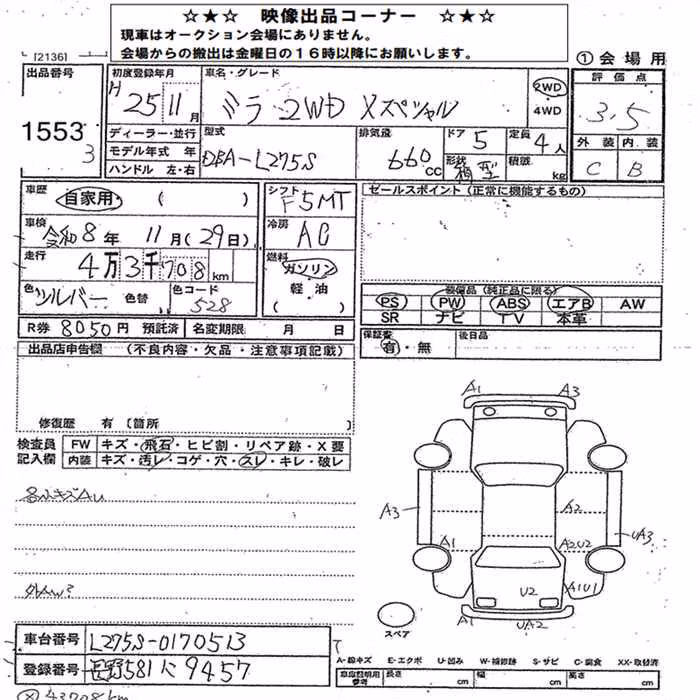 ☆★☆ 映像出品コーナー ☆★☆
現車はオークション会場にありません。
会場からの搬出は金曜日の16時以降にお願いします。
[2136]
① 会場用
出品番号
1553
3
初度登録年月
H 25 11月
車名・グレード
ミラ 2WD Xスペシャル
2WD
4WD
評価点
3.5
外装 内装
C B
ディーラー・並行
モデル年式 年
ハンドル 左・右
型式
DBA-L275S
排気量
660cc
ドア
5
形状
箱型
定員
4人
積載
kg
車歴
自家用 ( )
車検
令和8年 11月(29日)
走行
4万3千708km
色
シルバー
色替
色コード
S28
シフト
F5MT
冷房
AC
燃料
ガソリン
軽・油
( )
セールスポイント(正常に機能するもの)
装備品(純正品に限る)
PS PW ABS エアB AW
SR ナビ TV 本革
R券 8050円 預託済 名変期限 月 日
保証書
有・無
後日品
出品店申告欄 (不良内容・欠品・注意事項記載)
修復歴 有 〔箇所 〕
検査員
記入欄
FW キズ・飛石・ヒビ割・リペア跡・X要
内装 キズ・汚レ・コゲ・穴・スレ・キレ・破レ
各小キズAU
外AW?
A1 A3
A3
A1
A2
UA3
A2U2
U2
A1U1
UA2
スペア
車台番号 L275S-0170513
登録番号 長野581に9457
A-線キズ E-エクボ U-凹み W-補修跡 S-サビ C-腐食 XX-交換済
車庫証明用
参考
長さ cm 幅 cm 高さ cm
43708km